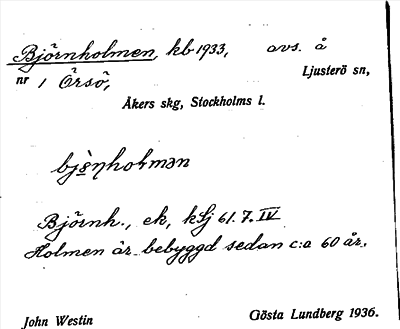 Björnholmen, kb 1933, avs. å
nr 1 Örsö, Ljusterö sn,
Åkers skg, Stockholms l.
Björnh., ek, kfj 61.7.IV
Holmen är bebyggd sedan c:a 60 år.
John Westin Gösta Lundberg 1936.